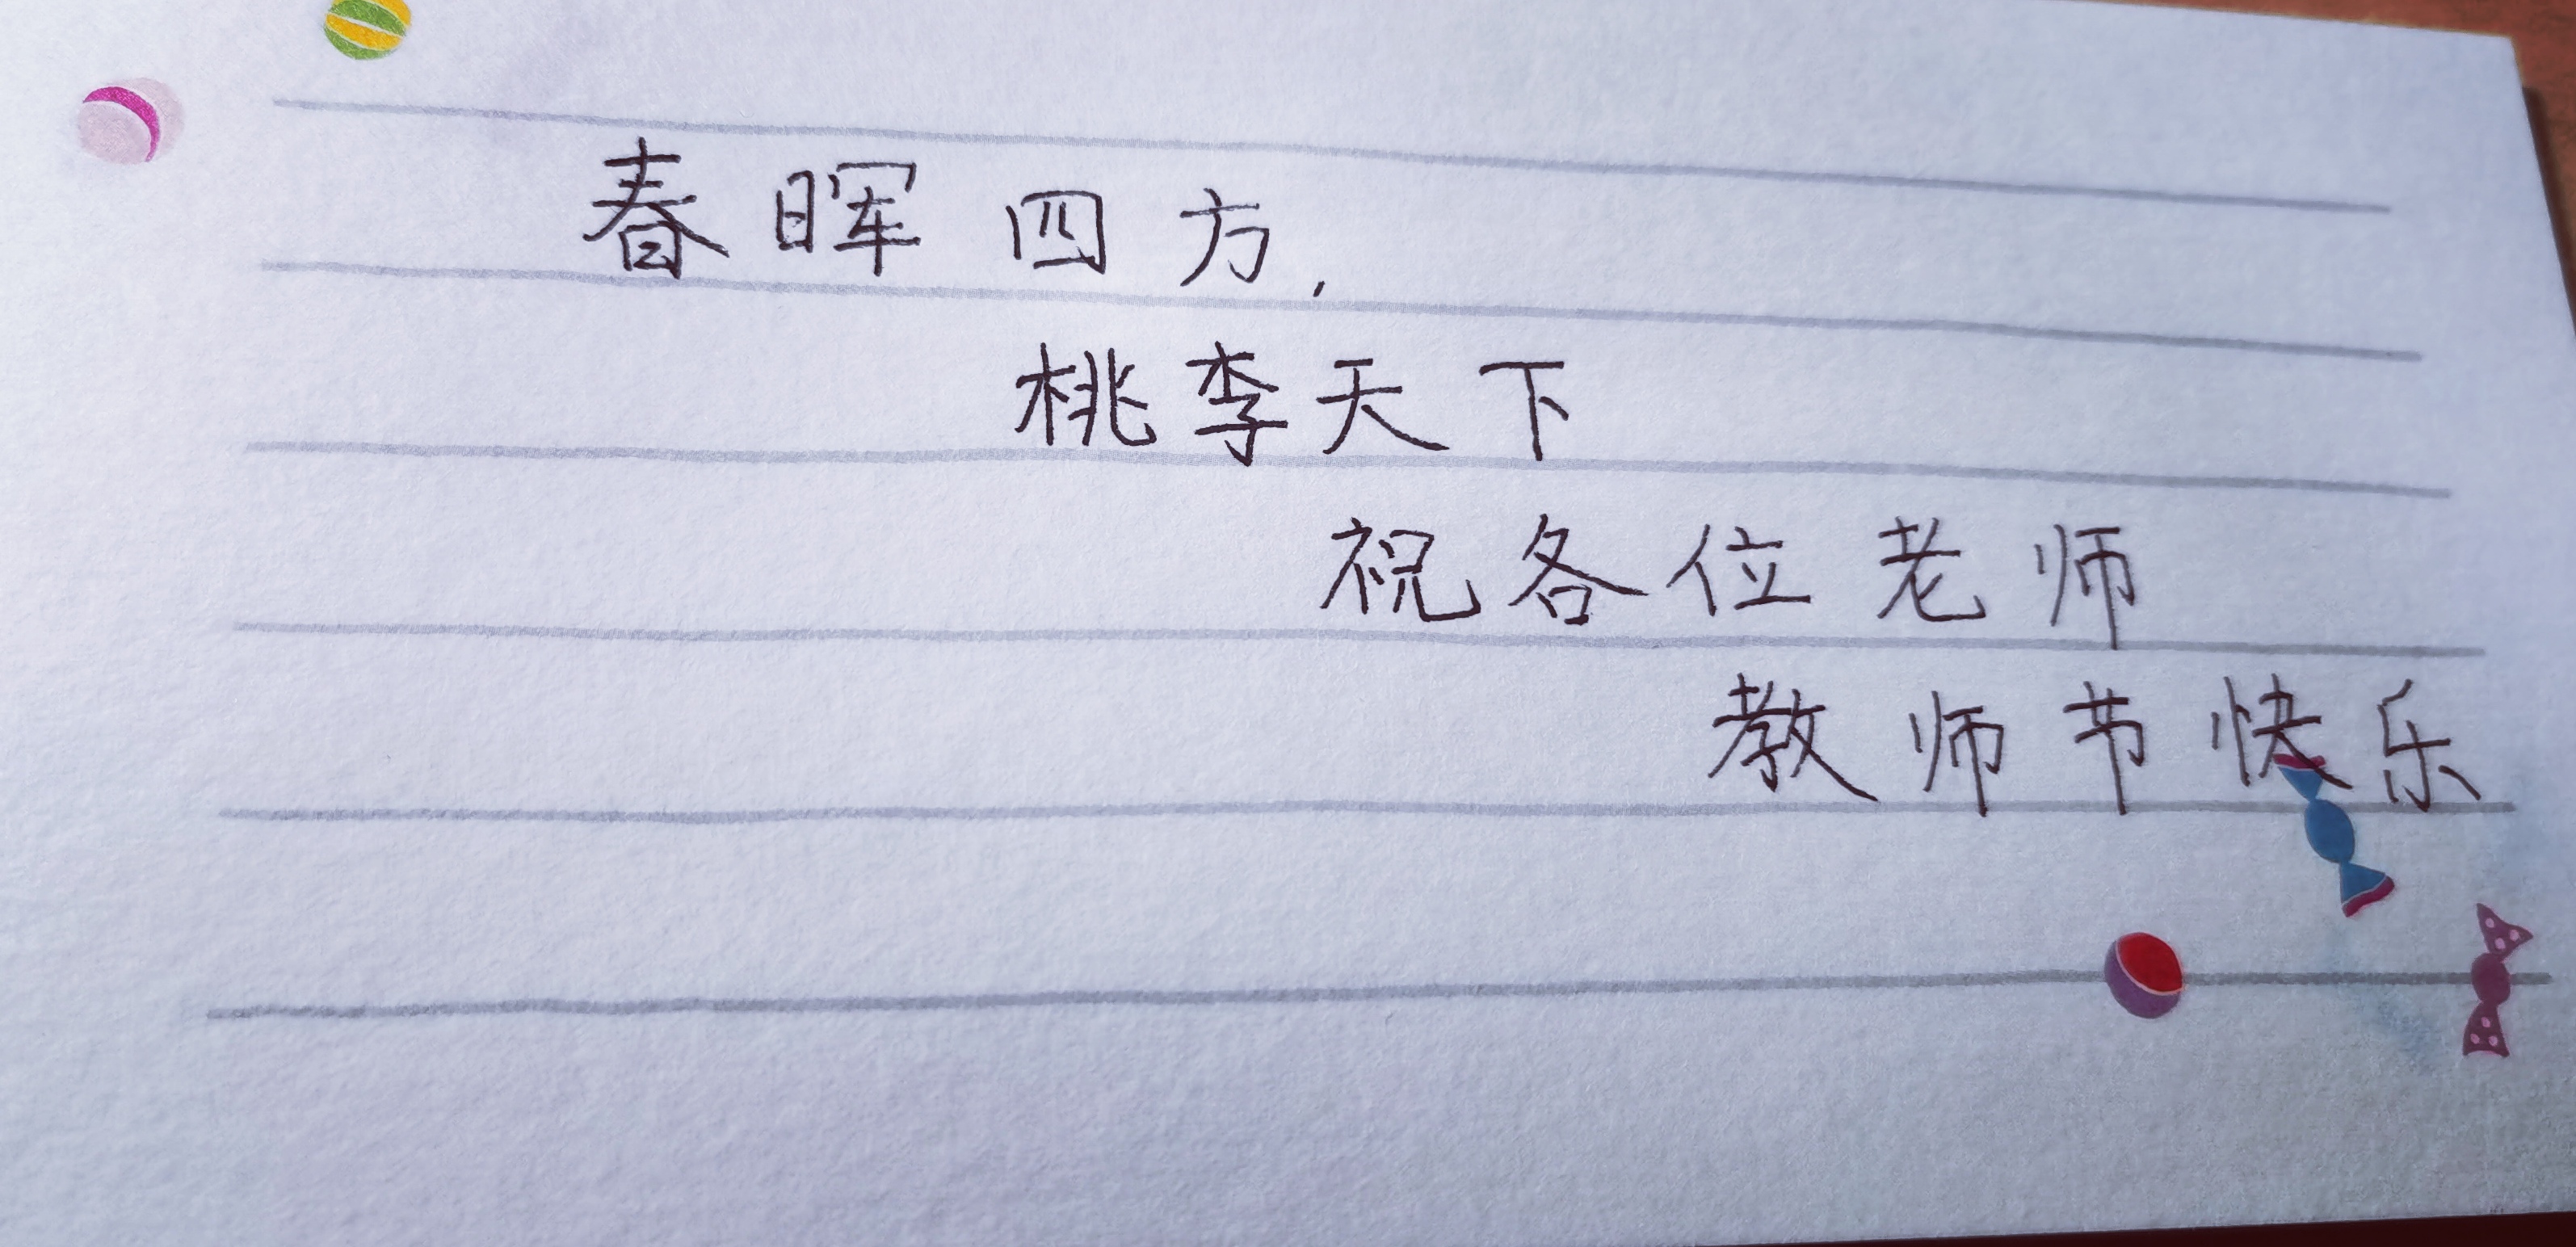 春晖四方,
桃李天下
祝各位老师
教师节快乐